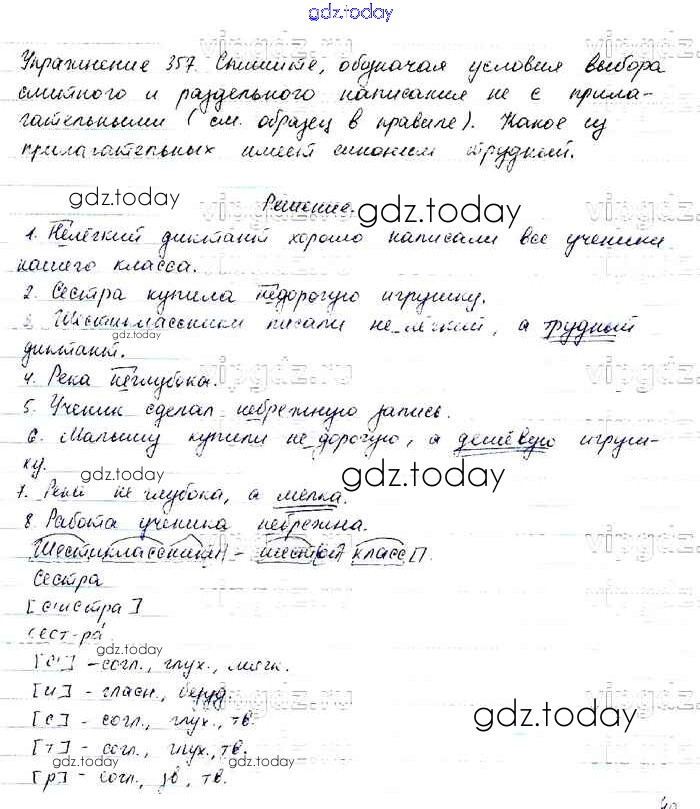 gdz.today
Упражнение 357. Спишите, обозначая условия выбора
слитного и раздельного написания не с прила-
гательными (см. образец в правиле). Какое из
прилагательных имеет синоним трудный.
gdz.today
Решение.
gdz.today
1. Нелёгкий диктант хорошо написали все ученики
нашего класса.
2. Сестра купила недорогую игрушку.
3 Шестиклассники писали не лёгкий, а трудный
gdz.today
диктант.
4. Река неглубока.
5. Ученик сделал небрежную запись.
6. Малышу купили не дорогую, а дешёвую игруш-
ку.
gdz.today
gdz.today
7. Река не глубока, а мелка.
8. Работа ученика небрежна.
Шестиклассники - шестой класс
Сестра
[с'истра]
сест-ра
gdz.today
[с'] - согл., глух., мягк.
[и] - гласн., безуд.
[с] - согл., глух., тв.
gdz.today
[т] - согл., глух., тв.
gdz.today
[р] - согл., зв, тв.